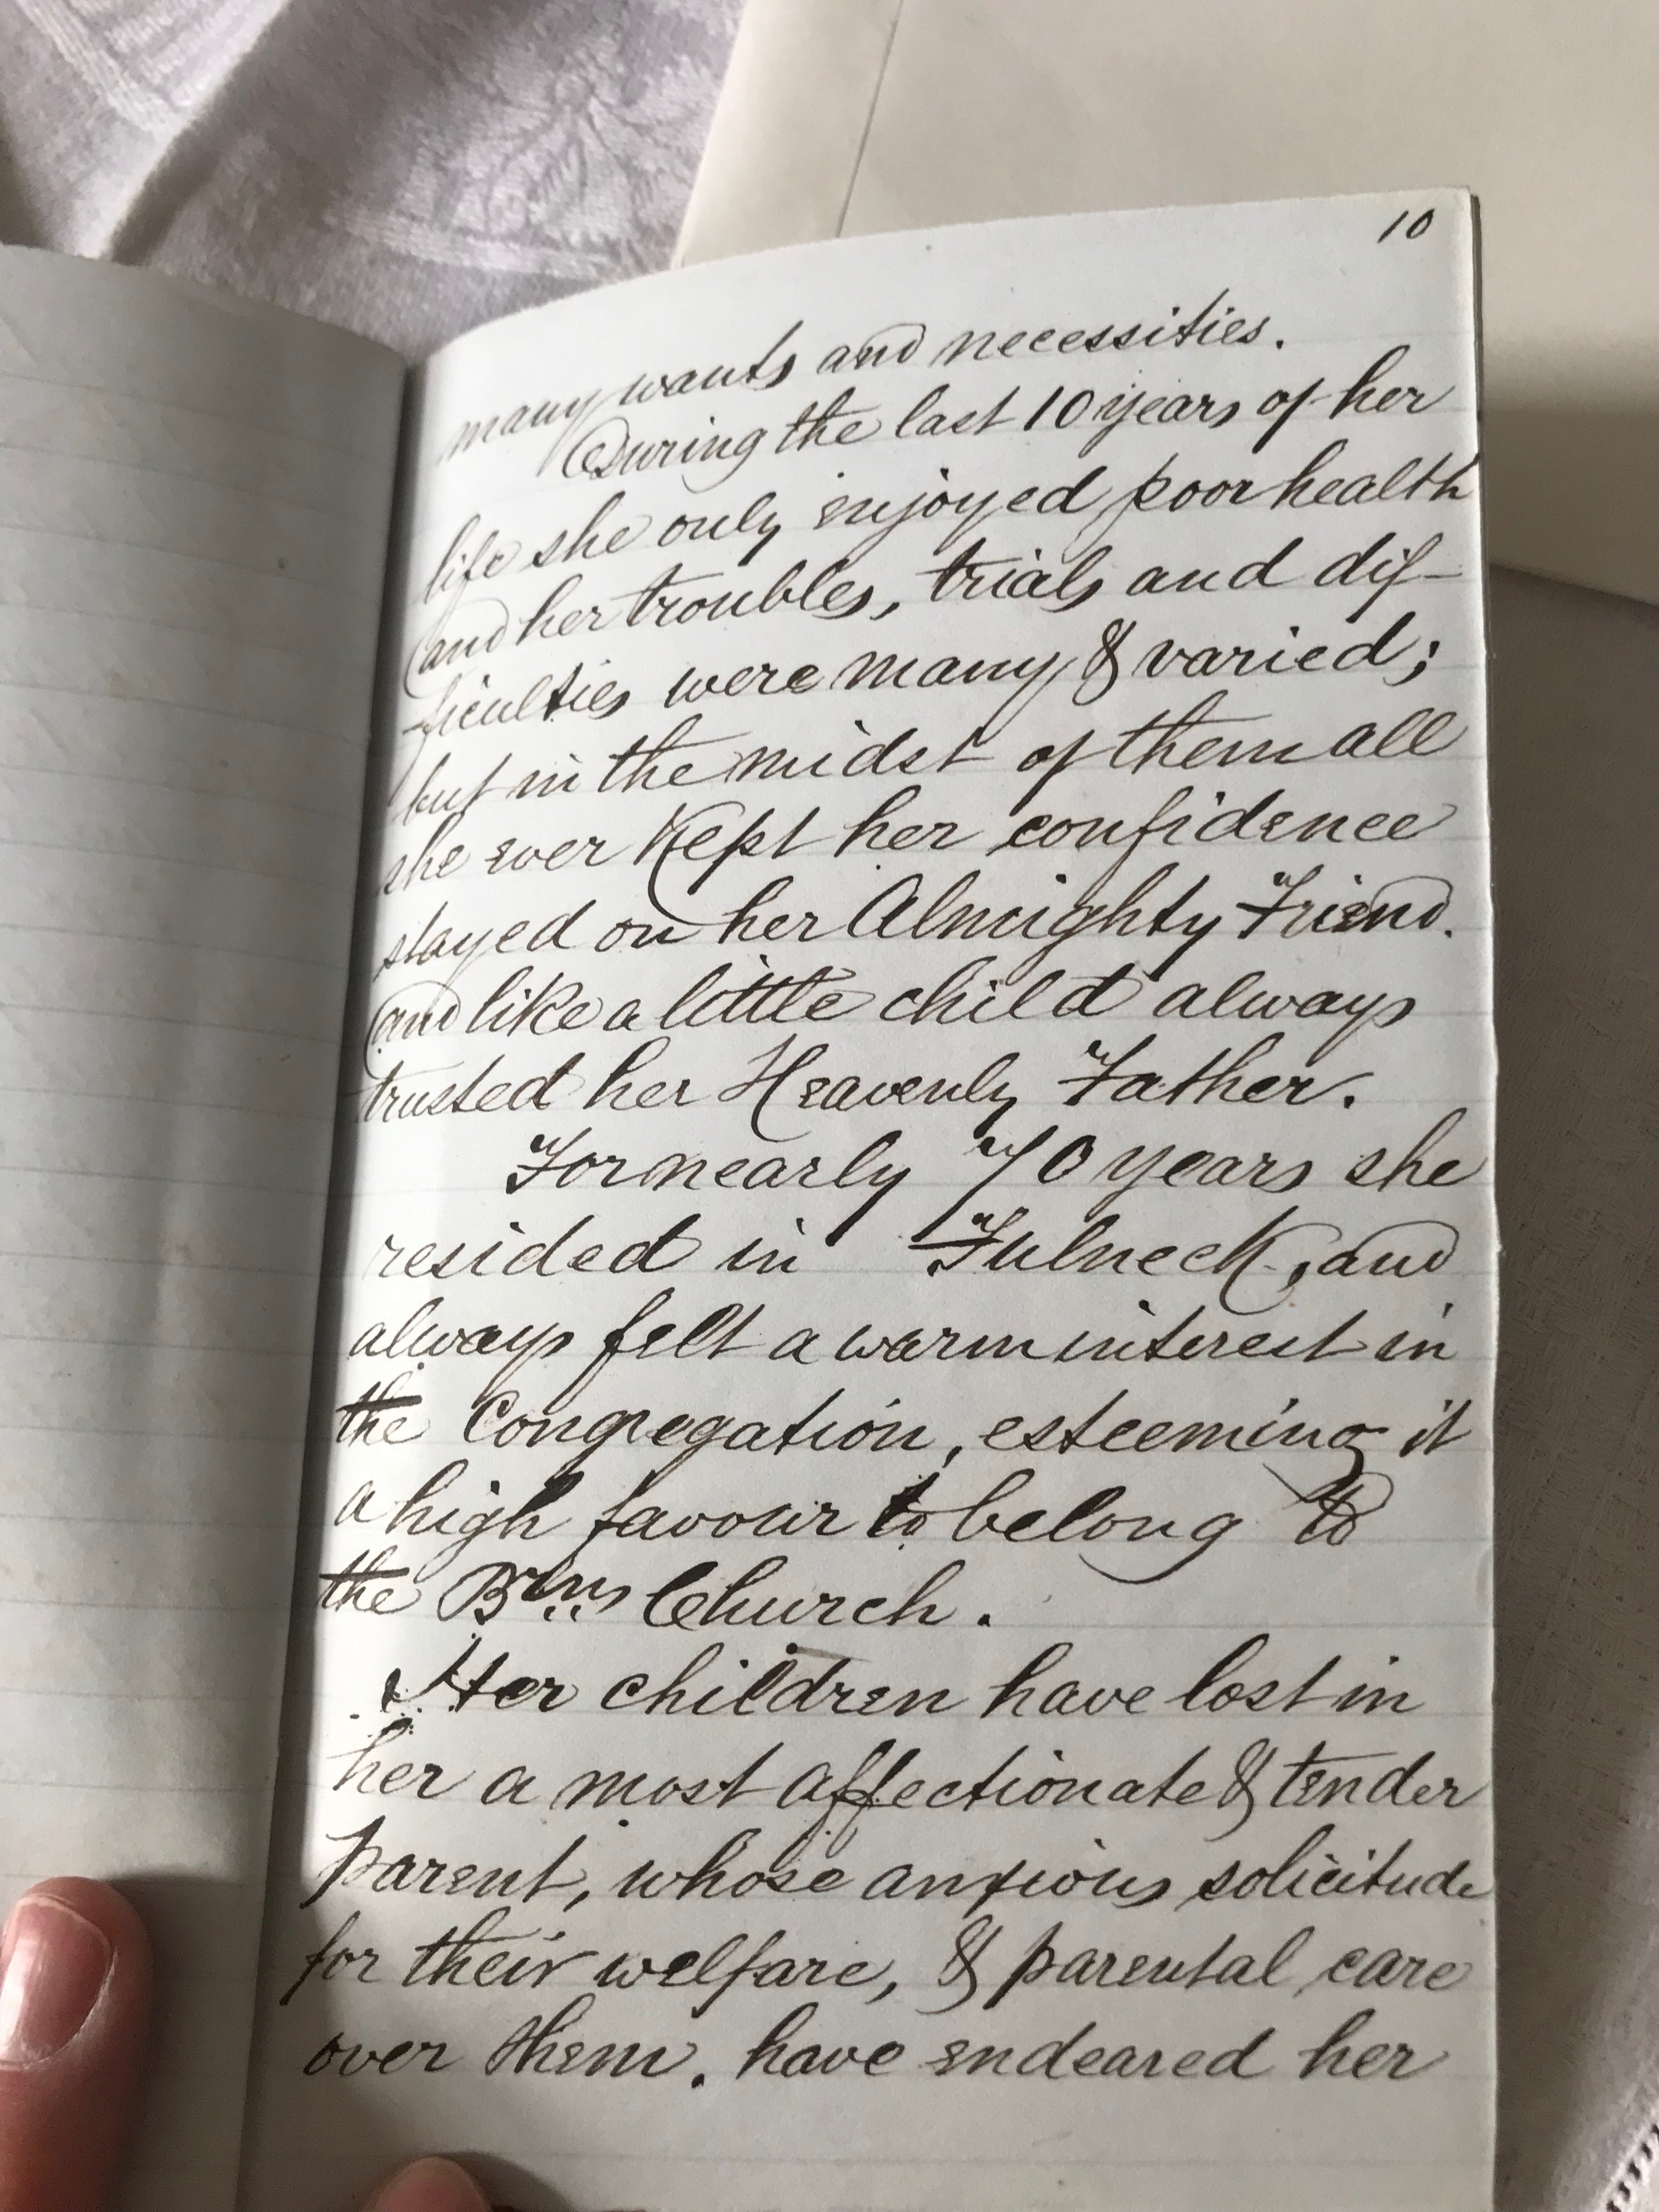 10
many wants and necessities.
During the last 10 years of her
life she only enjoyed poor health
and her troubles, trials and dif-
ficulties were many & varied;
but in the midst of them all
she ever kept her confidence
stayed on her Almighty Friend.
and like a little child always
trusted her Heavenly Father.
For nearly 70 years she
resided in Fulneck, and
always felt a warm interest in
the Congregation, esteeming it
a high favour to belong to
the Brns Church.
Her children have lost in
her a most affectionate & tender
Parent, whose anxious solicitude
for their welfare, & parental care
over them. have endeared her